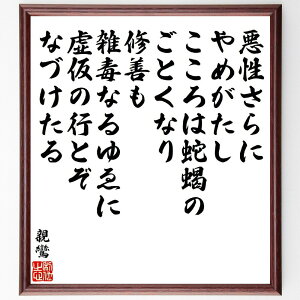 悪性さらに
やめがたし
こころは蛇蝎の
ごとくなり
修善も
雑毒なるゆゑに
虚仮の行とぞ
なづけたる
親鸞